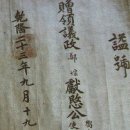 諡號
贈領議政 獻愍公
乾隆二十三年九月十九